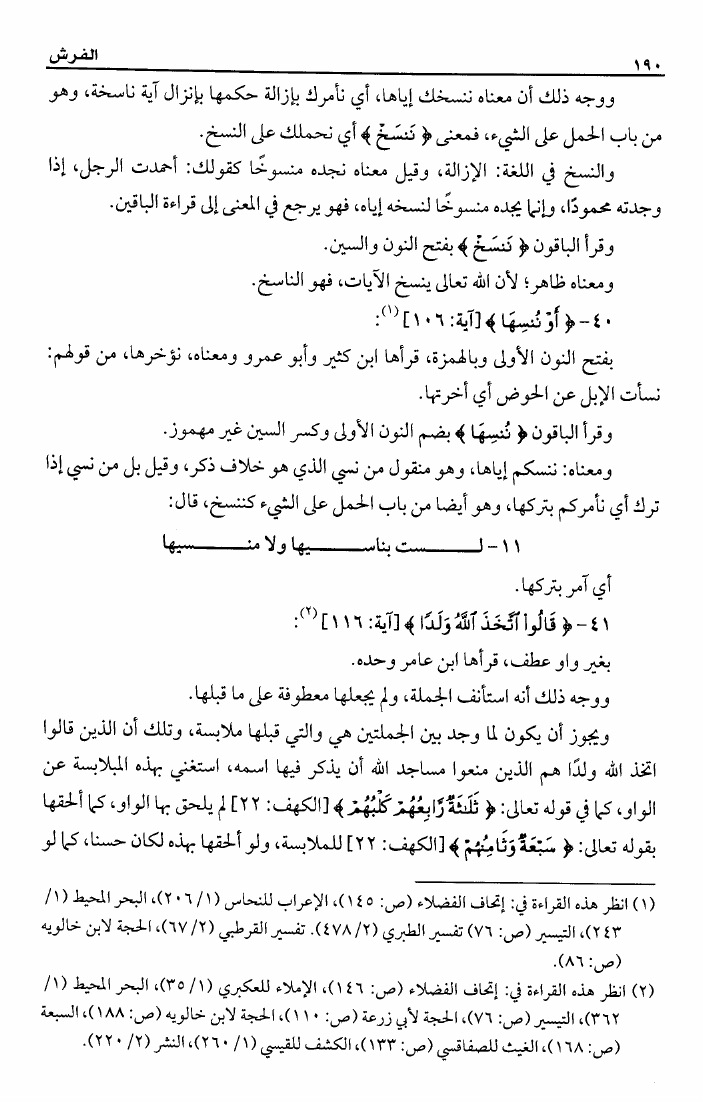 ١٩٠ الفرش
ووجه ذلك أن معناه ننسخك إياها، أي نأمرك بإزالة حكمها بإنزال آية ناسخة، وهو
من باب الحمل على الشيء، فمعنى ﴿ نَنسَخْ ﴾ أي نحملك على النسخ.
والنسخ في اللغة: الإزالة، وقيل معناه نجده منسوخًا كقولك: أحمدت الرجل، إذا
وجدته محمودًا، وإنما يجده منسوخًا لنسخه إياه، فهو يرجع في المعنى إلى قراءة الباقين.
وقرأ الباقون ﴿ نَنسَخْ ﴾ بفتح النون والسين.
ومعناه ظاهر؛ لأن الله تعالى ينسخ الآيات، فهو الناسخ.
٤٠- ﴿ أَوْ نُنسِهَا ﴾ [آية: ١٠٦] (١):
بفتح النون الأولى وبالهمزة، قرأها ابن كثير وأبو عمرو ومعناه، نؤخرها، من قولهم:
نسأت الإبل عن الحوض أي أخرتها.
وقرأ الباقون ﴿ نُنسِهَا ﴾ بضم النون الأولى وكسر السين غير مهموز.
ومعناه: ننسكم إياها، وهو منقول من نسي الذي هو خلاف ذكر، وقيل بل من نسي إذا
ترك أي نأمركم بتركها، وهو أيضا من باب الحمل على الشيء كننسخ، قال:
١١- لـــــست بناســـــيها ولا منـــــسيها
أي آمر بتركها.
٤١- ﴿ قَالُوا۟ ٱتَّخَذَ ٱللَّهُ وَلَدًا ﴾ [آية: ١١٦] (٢):
بغير واو عطف، قرأها ابن عامر وحده.
ووجه ذلك أنه استأنف الجملة، ولم يجعلها معطوفة على ما قبلها.
ويجوز أن يكون لما وجد بين الجملتين هي والتي قبلها ملابسة، وتلك أن الذين قالوا
اتخذ الله ولدًا هم الذين منعوا مساجد الله أن يذكر فيها اسمه، استغني بهذه الملابسة عن
الواو، كما في قوله تعالى: ﴿ ثَلَـٰثَةٌ رَّابِعُهُمْ كَلْبُهُمْ ﴾ [الكهف: ٢٢] لم يلحق بها الواو، كما ألحقها
بقوله تعالى: ﴿ سَبْعَةٌ وَثَامِنُهُمْ ﴾ [الكهف: ٢٢] للملابسة، ولو ألحقها بهذه لكان حسنا، كما لو
(١) انظر هذه القراءة في: إتحاف الفضلاء (ص: ١٤٥)، الإعراب للنحاس (١/ ٢٠٦)، البحر المحيط (١/
٢٤٣)، التيسير (ص: ٧٦) تفسير الطبري (٢/ ٤٧٨). تفسير القرطبي (٢/ ٦٧)، الحجة لابن خالويه
(ص: ٨٦).
(٢) انظر هذه القراءة في: إتحاف الفضلاء (ص: ١٤٦)، الإملاء للعكبري (١/ ٣٥)، البحر المحيط (١/
٣٦٢)، التيسير (ص: ٧٦)، الحجة لأبي زرعة (ص: ١١٠)، الحجة لابن خالويه (ص: ١٨٨)، السبعة
(ص: ١٦٨)، الغيث للصفاقسي (ص: ١٣٣)، الكشف للقيسي (١/ ٢٦٠)، النشر (٢/ ٢٢٠).